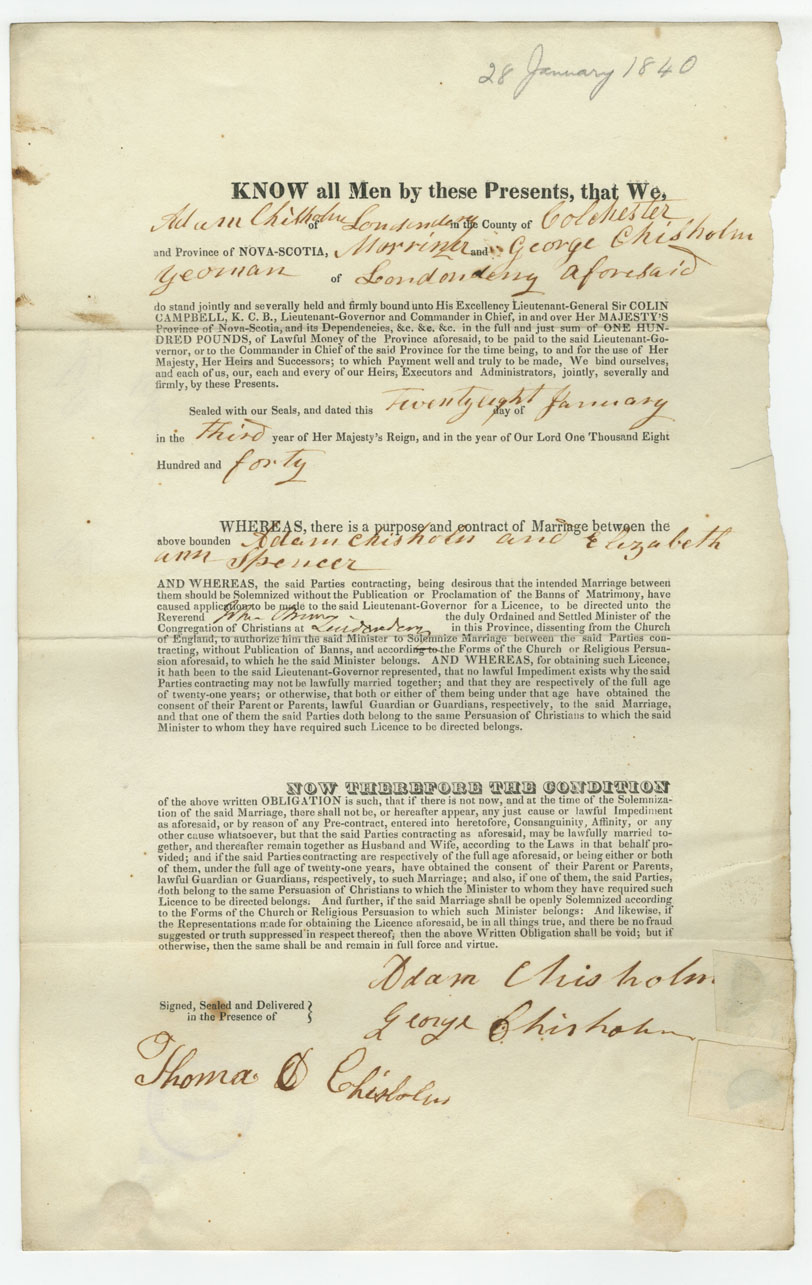 28 January 1840
KNOW all Men by these Presents, that We,
Adam Chisholm of Londonderry in the County of Colchester
and Province of NOVA-SCOTIA, Morriner and George Chisholm
Yeoman of Londonderry Aforesaid
do stand jointly and severally held and firmly bound unto His Excellency Lieutenant-General Sir COLIN
CAMPBELL, K. C. B., Lieutenant-Governor and Commander in Chief, in and over Her MAJESTY'S
Province of Nova-Scotia, and its Dependencies, &c. &c. &c. in the full and just sum of ONE HUN-
DRED POUNDS, of Lawful Money of the Province aforesaid, to be paid to the said Lieutenant-Go-
vernor, or to the Commander in Chief of the said Province for the time being, to and for the use of Her
Majesty, Her Heirs and Successors; to which Payment well and truly to be made, We bind ourselves,
and each of us, our, each and every of our Heirs, Executors and Administrators, jointly, severally and
firmly, by these Presents.
Sealed with our Seals, and dated this Twentyeight day of January
in the third year of Her Majesty's Reign, and in the year of Our Lord One Thousand Eight
Hundred and forty
WHEREAS, there is a purpose and contract of Marriage between the
above bounden Adam Chisholm and Elizabeth
ann Spencer
AND WHEREAS, the said Parties contracting, being desirous that the intended Marriage between
them should be Solemnized without the Publication or Proclamation of the Banns of Matrimony, have
caused application to be made to the said Lieutenant-Governor for a Licence, to be directed unto the
Reverend John the duly Ordained and Settled Minister of the
Congregation of Christians at Londonderry in this Province, dissenting from the Church
of England, to authorize him the said Minister to Solemnize Marriage between the said Parties con-
tracting, without Publication of Banns, and according to the Forms of the Church or Religious Persua-
sion aforesaid, to which he the said Minister belongs. AND WHEREAS, for obtaining such Licence,
it hath been to the said Lieutenant-Governor represented, that no lawful Impediment exists why the said
Parties contracting may not be lawfully married together; and that they are respectively of the full age
of twenty-one years; or otherwise, that both or either of them being under that age have obtained the
consent of their Parent or Parents, lawful Guardian or Guardians, respectively, to the said Marriage,
and that one of them the said Parties doth belong to the same Persuasion of Christians to which the said
Minister to whom they have required such Licence to be directed belongs.
NOW THEREFORE THE CONDITION
of the above written OBLIGATION is such, that if there is not now, and at the time of the Solemniza-
tion of the said Marriage, there shall not be, or hereafter appear, any just cause or lawful Impediment
as aforesaid, or by reason of any Pre-contract, entered into heretofore, Consanguinity, Affinity, or any
other cause whatsoever, but that the said Parties contracting as aforesaid, may be lawfully married to-
gether, and thereafter remain together as Husband and Wife, according to the Laws in that behalf pro-
vided; and if the said Parties contracting are respectively of the full age aforesaid, or being either or both
of them, under the full age of twenty-one years, have obtained the consent of their Parent or Parents,
lawful Guardian or Guardians, respectively, to such Marriage; and also, if one of them, the said Parties,
doth belong to the same Persuasion of Christians to which the Minister to whom they have required such
Licence to be directed belongs: And further, if the said Marriage shall be openly Solemnized according
to the Forms of the Church or Religious Persuasion to which such Minister belongs: And likewise, if
the Representations made for obtaining the Licence aforesaid, be in all things true, and there be no fraud
suggested or truth suppressed in respect thereof; then the above Written Obligation shall be void; but if
otherwise, then the same shall be and remain in full force and virtue.
Adam Chisholm
Signed, Sealed and Delivered
in the Presence of
George Chisholm
Thomas D Chisholm